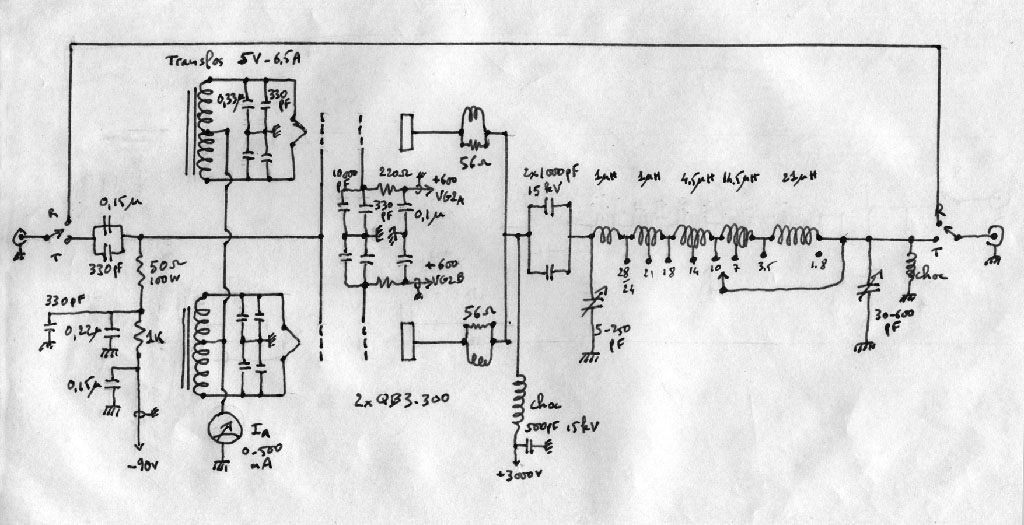 Transfos 5V-6,5A
0,33µ
330
pF
R
T
0,15µ
330pF
50Ω
100W
330pF
0,22µ
1K
0,15µ
-90V
IA
0-500
mA
1000
pF
220Ω
330
pF
+600
VG2A
0,1µ
+600
VG2B
56Ω
56Ω
2x QB3.300
2x1000pF
15kV
choc
500pF 15kV
+3000V
1µH
1µH
4,5µH
14,5µH
21µH
28
24
21
18
14
10
7
3.5
1.8
5-250
pF
30-600
pF
choc
R
T